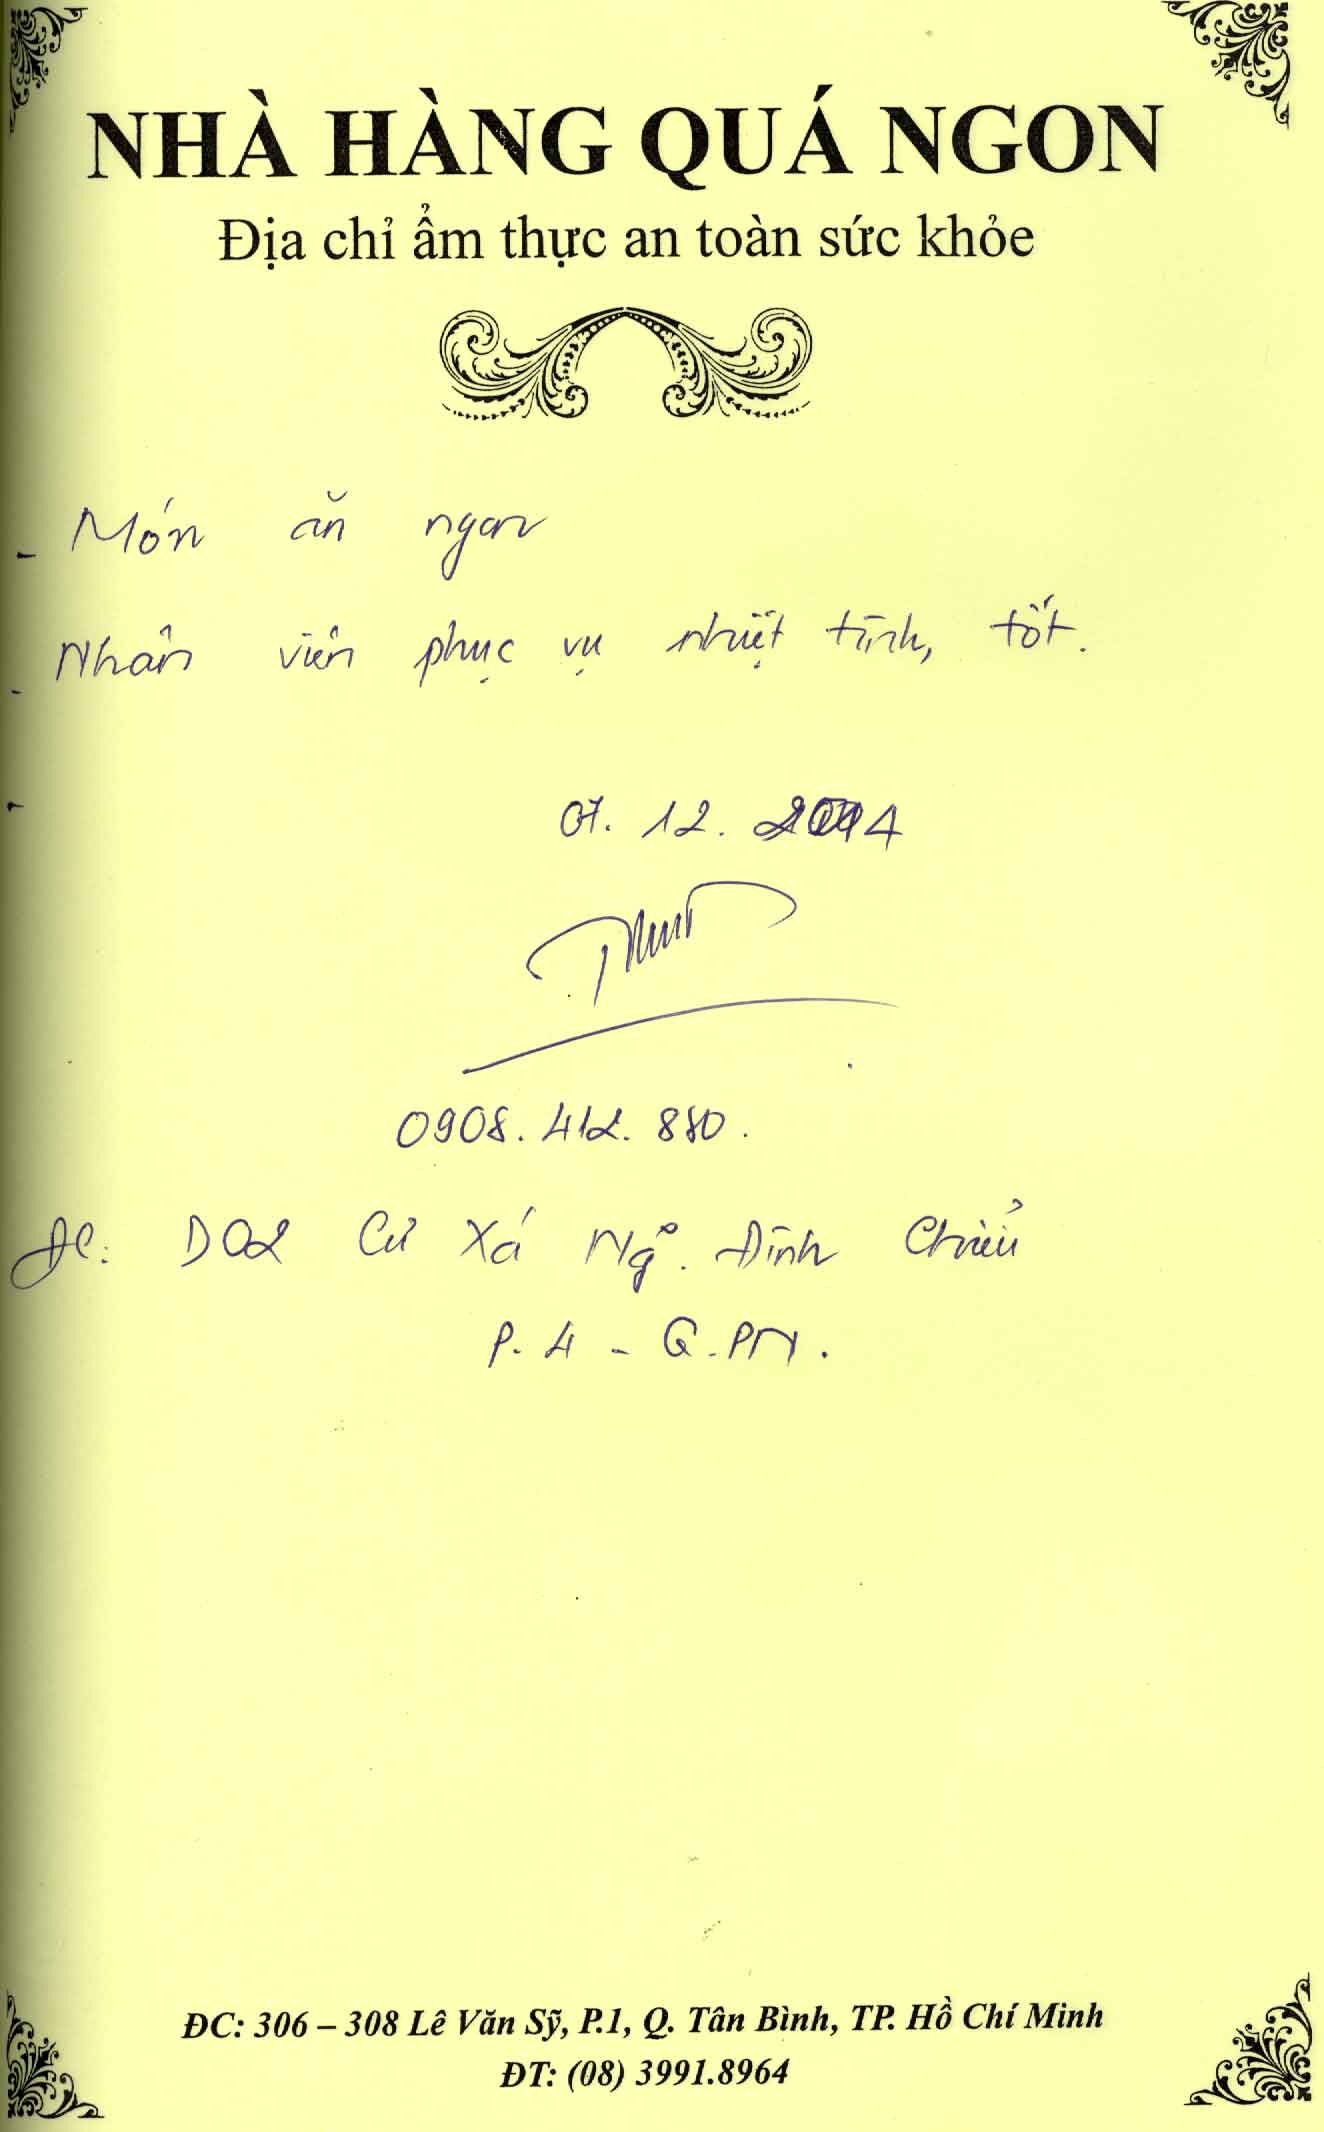 NHÀ HÀNG QUÁ NGON
Địa chỉ ẩm thực an toàn sức khỏe
- Món ăn ngon
- Nhân viên phục vụ nhiệt tình, tốt.
07. 12. 2014
0908. 412. 880.
ĐC: D02 Cư Xá Ng~. Đình Chiểu
P. 4 - Q. PN.
ĐC: 306 – 308 Lê Văn Sỹ, P.1, Q. Tân Bình, TP. Hồ Chí Minh
ĐT: (08) 3991.8964